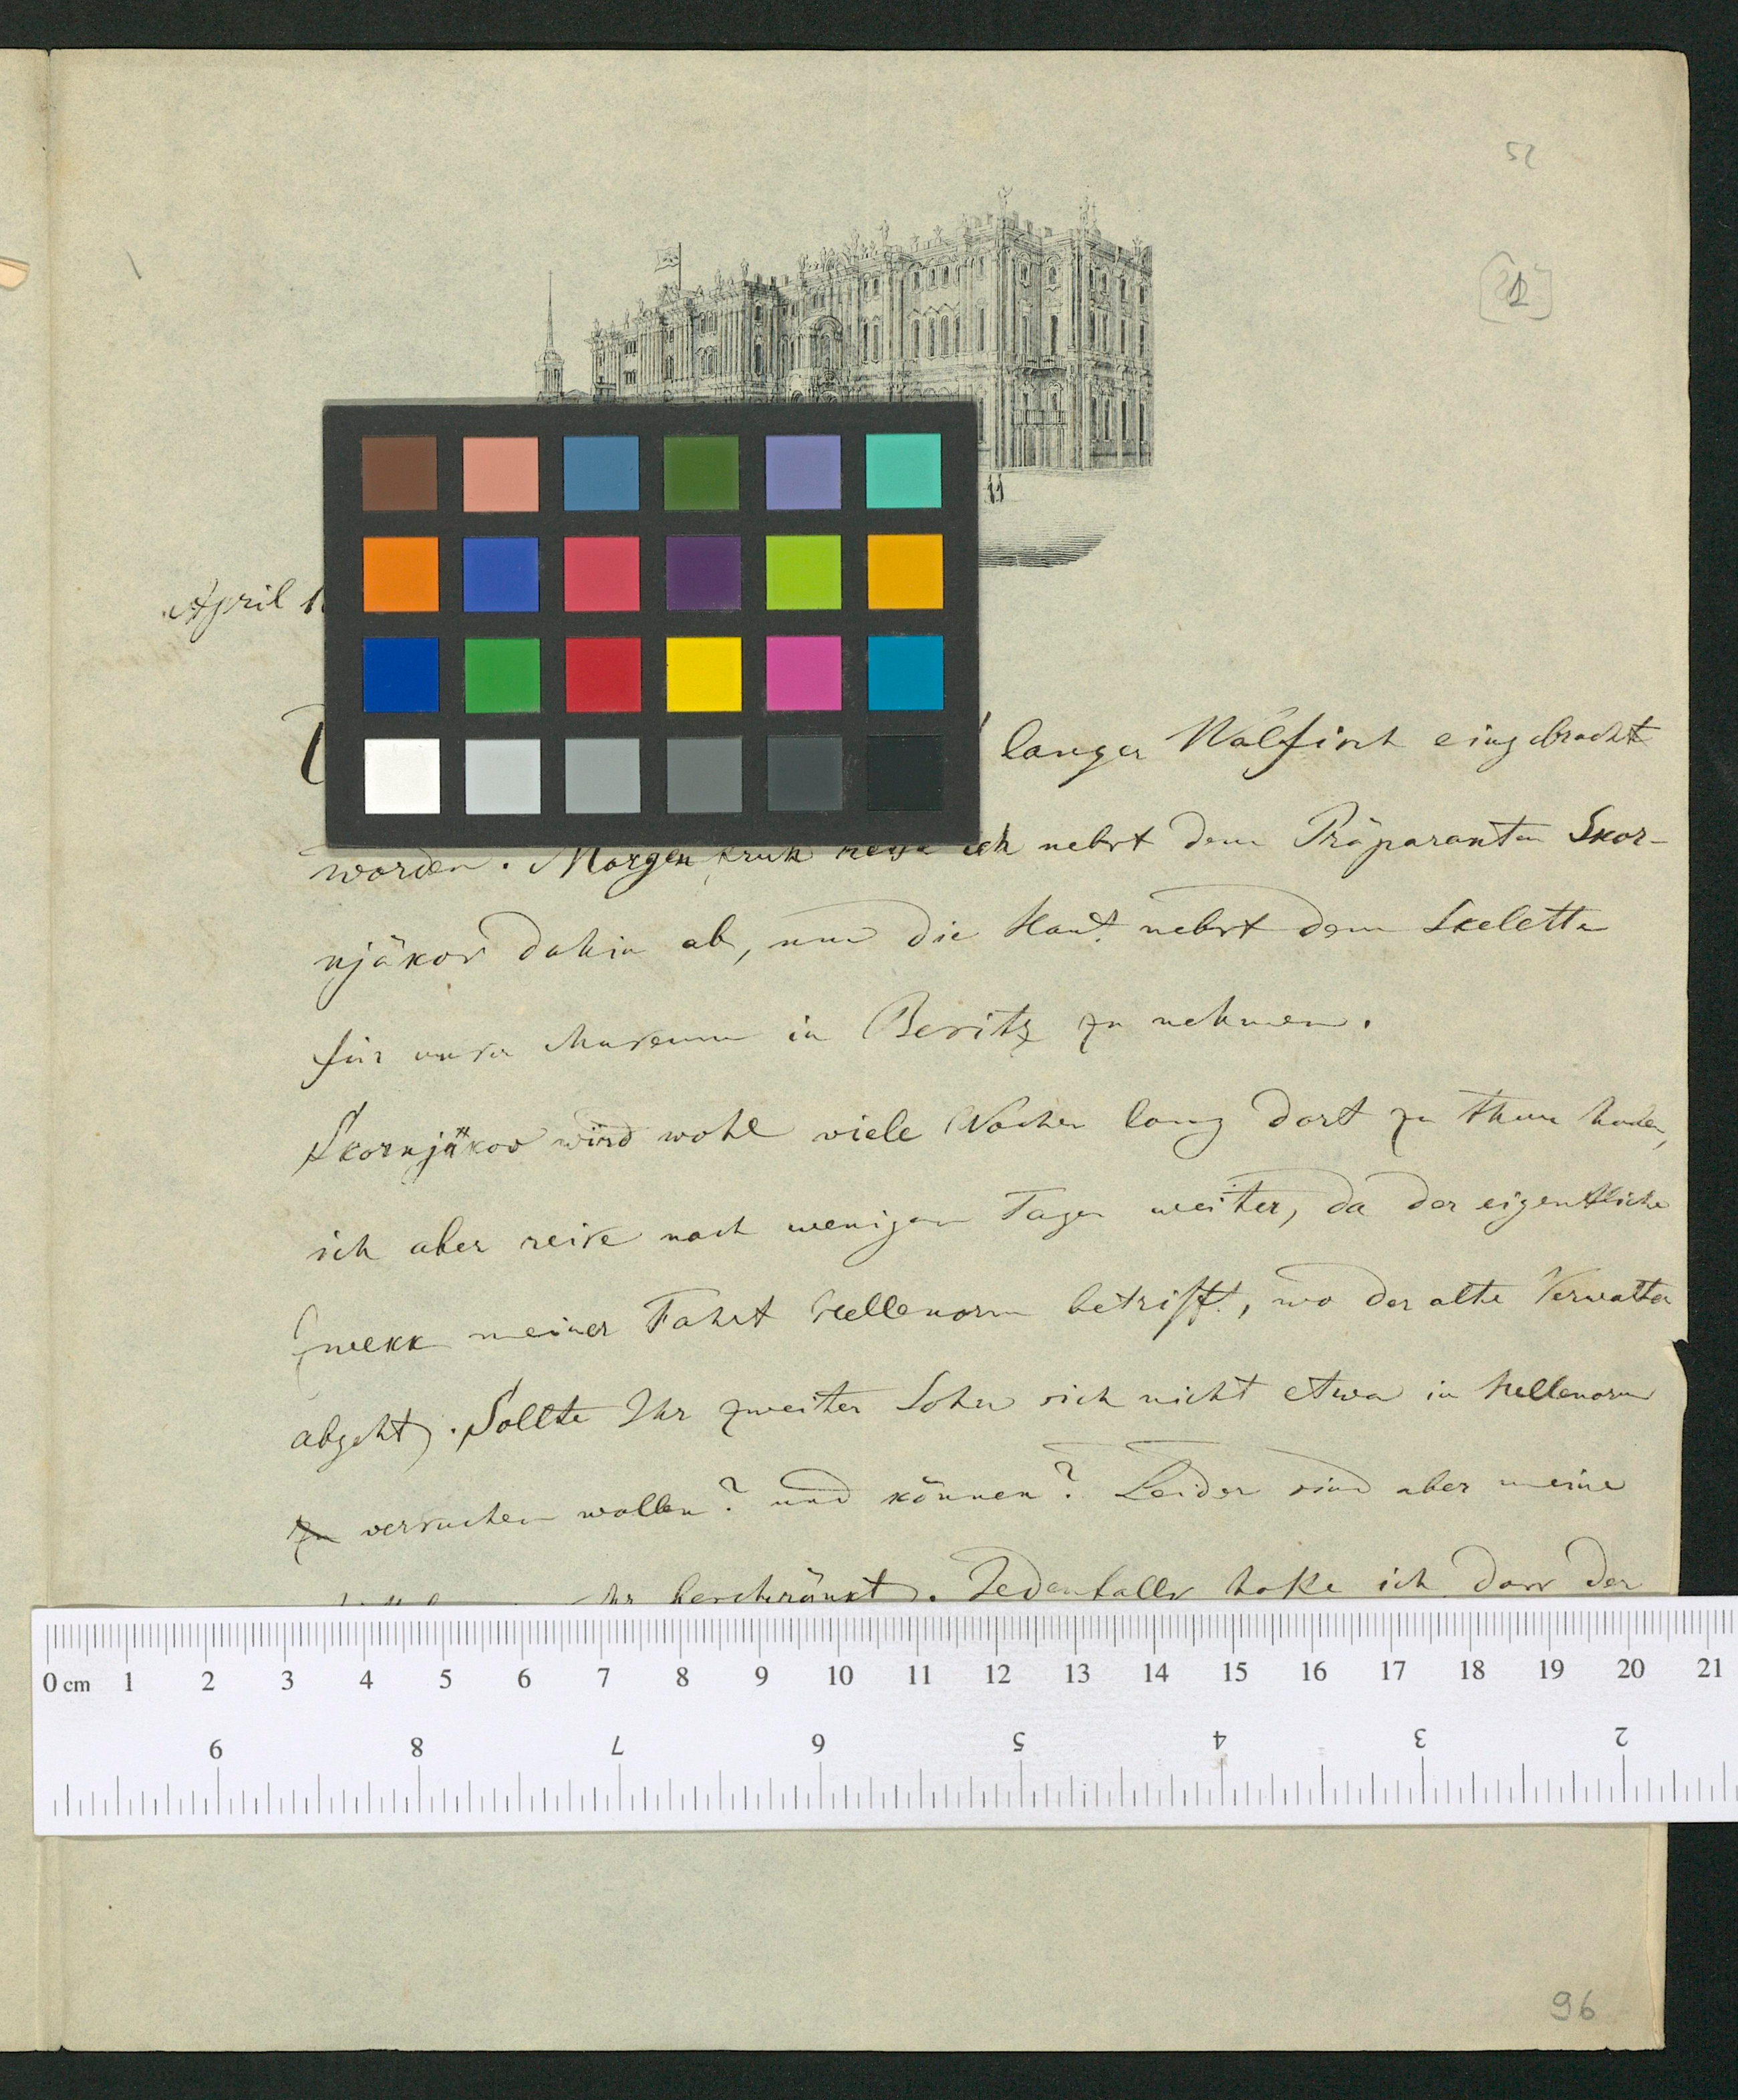 52
April
langer Walfisch eingebracht
worden. Morgen früh reise ich nebst dem Präparanten Skor-
njäkow dahin ab, um die Haut nebst dem Skelette
für unser Museum in Besitz zu nehmen.
Skornjäkow wird wohl viele Wochen lang dort zu thun haben,
ich aber reise nach wenigen Tagen weiter, da der eigentliche
Zwekk meiner Fahrt Hellenorm betrifft, wo der alte Verwalter
abgeht. Sollte Ihr zweiter Sohn sich nicht etwa in Hellenorm
zu versuchen wollen? und können? Leider sind aber meine
beschränkt. Jedenfalls hoffe ich dass der
0 cm 1 2 3 4 5 6 7 8 9 10 11 12 13 14 15 16 17 18 19 20 21
9 8 7 6 5 4 3 2
96